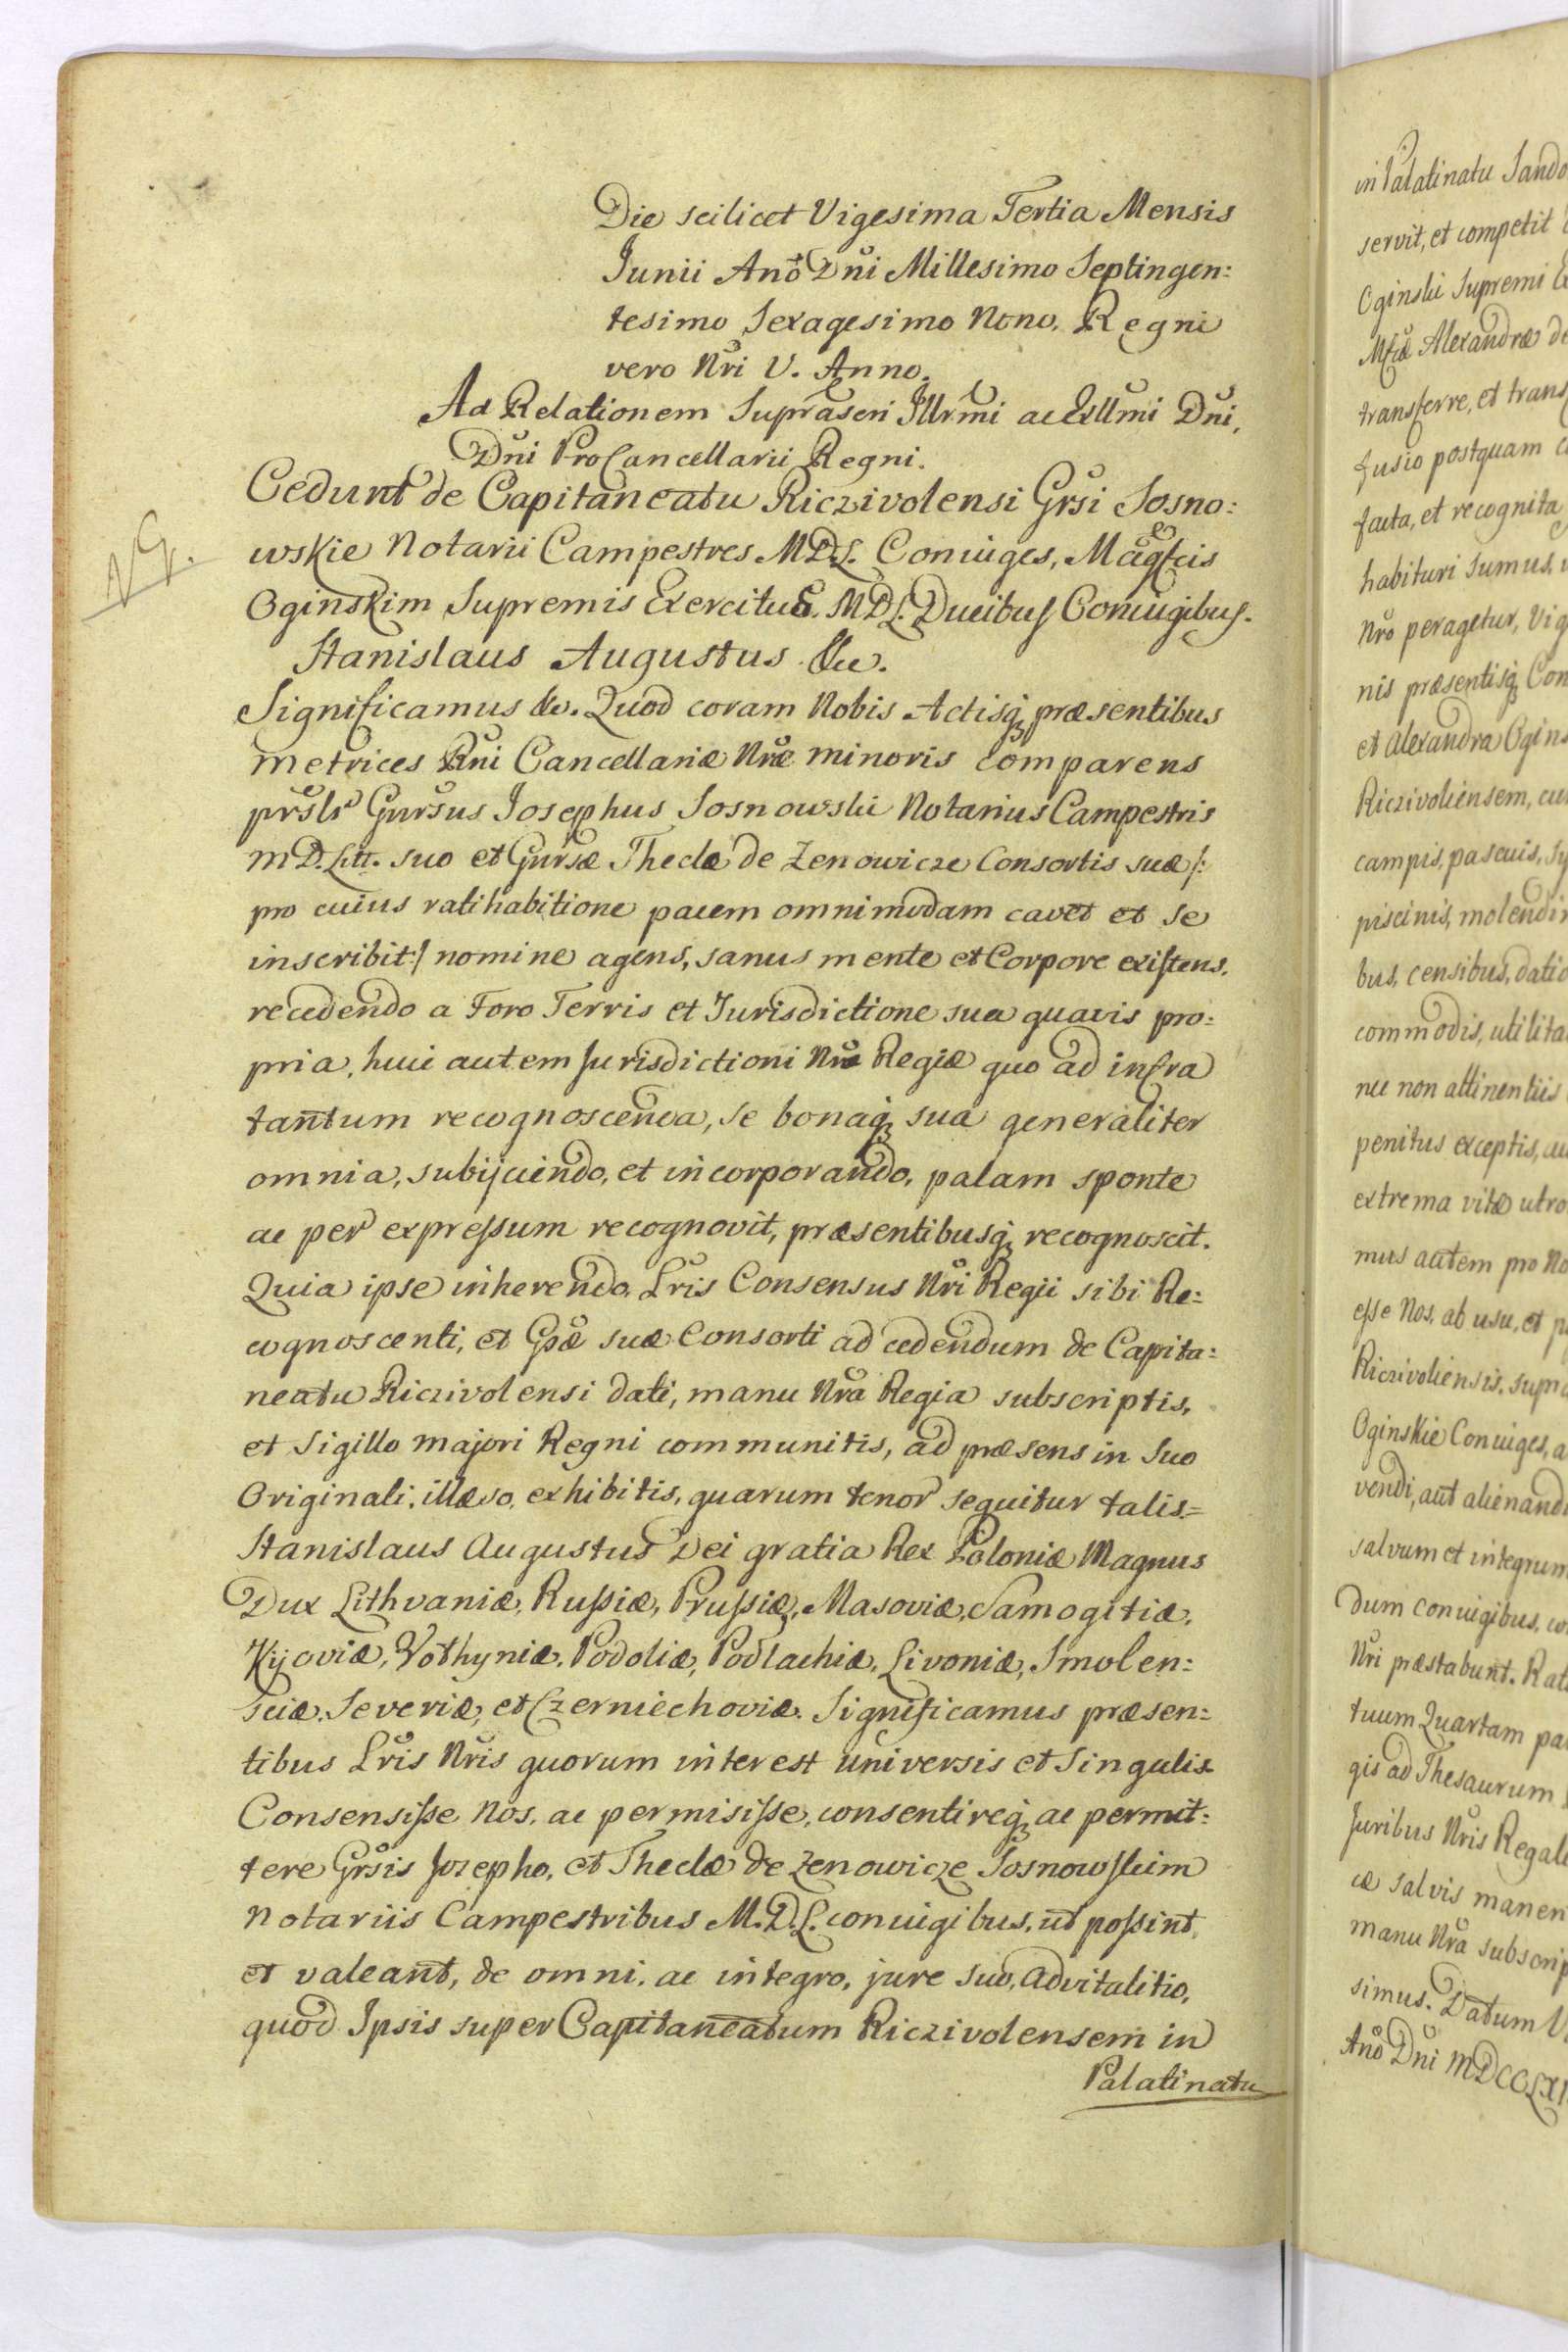 Die scilicet Vigesima Tertia Mensis
Junii Año Dñi Millesimo Septingen:
tesimo Sexagesimo Nono. Regni
vero Nri V. Anno.
Ad Relationem Suprascri Illrmi ac Exllmi Dni,
Dni ProCancellarii Regni.
Cedunt de Capitaneatu Riczivolensi Grsi Sosno:
wskie Notarii Campestres M.D.L. Coniuges, Magfcis
Oginskim Supremis Exercitus. M.D.L. Ducibus Coniugibus.
Stanislaus Augustus &c.
Significamus &c. Quod coram Nobis Actisq, præsentibus
metrices Rni Cancellariæ Nræ minoris comparens
prslr Gnrsus Josephus Sosnowski Notarius Campestris
M.D.Litt. suo et Gnrsæ Theclæ de Zenowicze Consortis suæ /:
pro cuius ratihabitione pacem omnimodam cavet et se
inscribit :/ nomine agens, sanus mente et Corpore existens.
recedendo a Foro Terris et Jurisdictione sua quavis pro:
pria, huic autem Jurisdictioni Nræ Regiæ quo ad infra
tantum recognoscenda, se bonaq, sua generaliter
omnia, subijciendo, et incorporando, palam sponte
ac per expressum recognovit, præsentibusq, recognoscit.
Quia ipse inherendo Lris Consensus Nri Regii sibi Re:
cognoscenti, et Gsæ suæ Consorti ad cedendum de Capita:
neatu Riczivolensi dati, manu Nra Regia subscriptis,
et Sigillo majori Regni communitis, ad præsens in suo
Originali, illæso, exhibitis, quarum tenor sequitur talis=
Stanislaus Augustus Dei gratia Rex Poloniæ Magnus
Dux Lithvaniæ, Russiæ, Prussiæ, Masoviæ, Samogitiæ,
Kijoviæ, Volhyniæ, Podoliæ, Podlachiæ, Livoniæ, Smolen:
sciæ, Severiæ, et Czerniechoviæ. Significamus præsen:
tibus Lris Nris quorum interest universis et Singulis
Consensisse Nos, ac permisisse, consentireq, ac permit:
tere Grsis Jozepho, et Theclæ de Zenowicze Sosnowskim
Notariis Campestribus M.D.L. coniugibus, ut possint,
et valeant, de omni, ac integro, jure suo, advitalitio,
quod Ipsis super Capitaneatum Riczivolensem in
Palatinatu
in Palatinatu Sando
servit, et competit
Oginski Supremi
Mfcæ Alexandræ de
transferre, et trans
fusio postquam
facta, et recognita
habituri sumus,
Nro peragetur, Vig
nis præsentisq, Con
et Alexandra Ogins
Riczivoliensem, cu
campis, pascuis, sy
piscinis, molendin
bus, censibus, datio
commodis, utilita
nec non attinentiis
penitus exceptis, au
extrema vitæ utro
mus autem pro No
esse Nos, ab usu, et p
Riczivoliensis, supra
Oginskie Coniuges, a
vendi, aut alienandi
salvum et integrum
dum coniugibus, co
Nri præstabunt. Rat
tuum Quartam pa
gis ad Thesaurum
Juribus Nris Regali
cæ salvis manen
manu Nra subscrip
simus. Datum V
Año Dni MDCCLXI